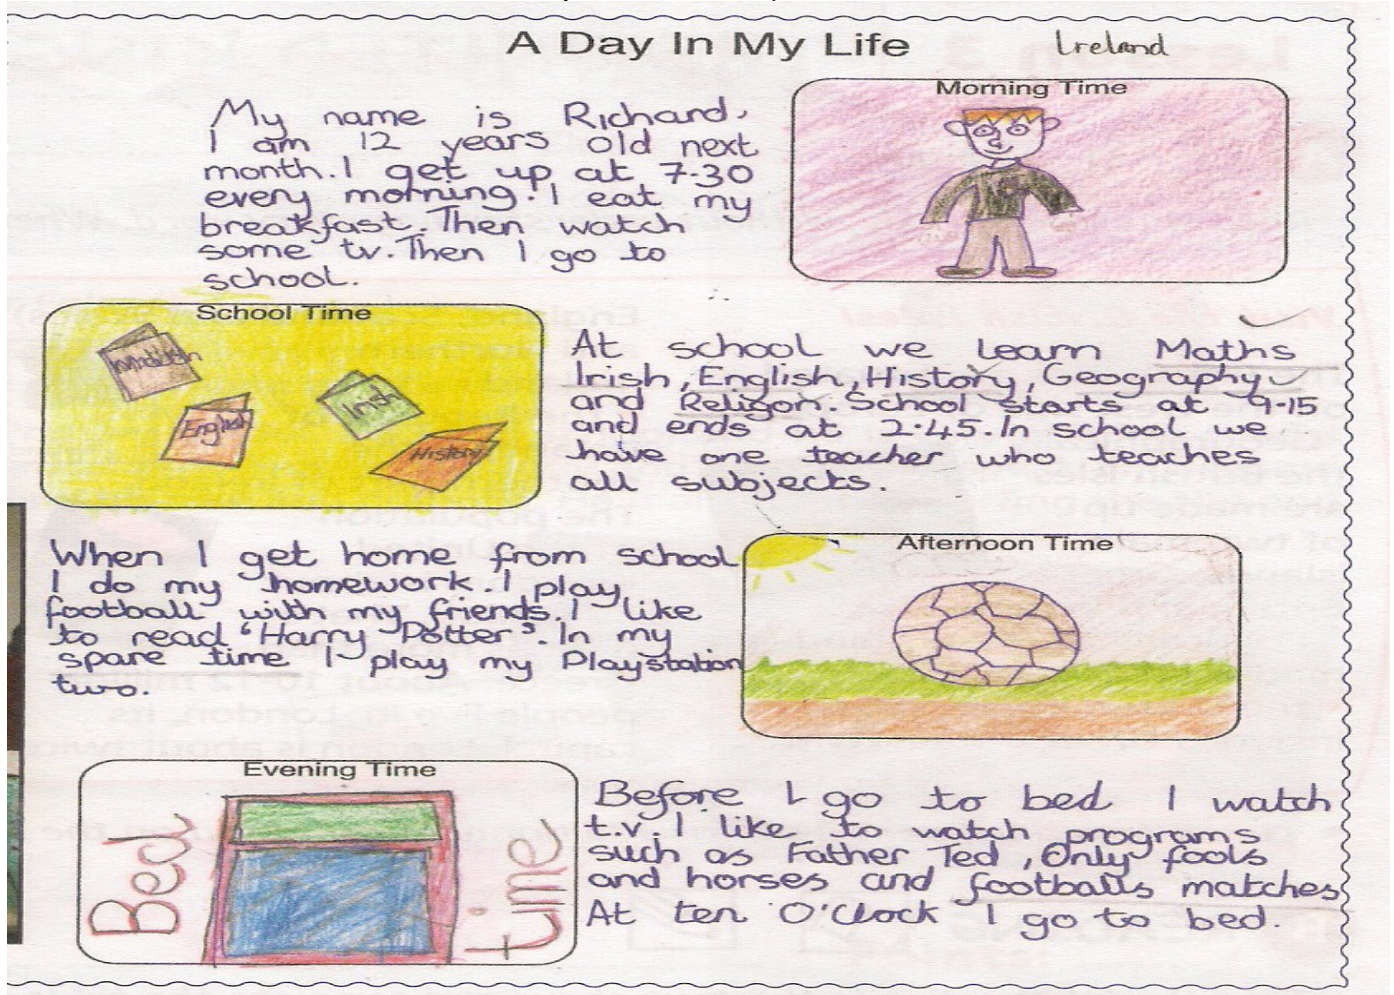 A Day In My Life
Ireland
My name is Richard.
I am 12 years old next
month. I get up at 7.30
every morning. I eat my
breakfast. Then watch
some tv. Then I go to
school.
Morning Time
School Time
English
Irish
History
At school we learn Maths
Irish, English, History, Geography
and Religon. School starts at 9.15
and ends at 2.45. In school we
have one teacher who teaches
all subjects.
When I get home from school
I do my homework. I play
football with my friends. I like
to read "Harry Potter". In my
spare time I play my Playstation
two.
Afternoon Time
Evening Time
Bed time
Before I go to bed I watch
t.v. I like to watch programs
such as Father Ted, Only fools
and horses and footballs matches
At ten O'Clock I go to bed.